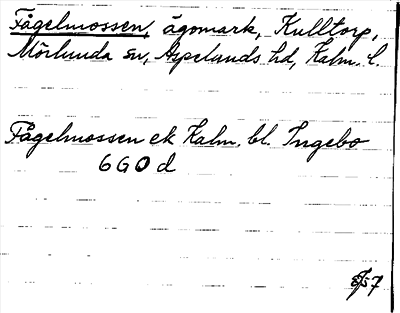 Fågelmossen, ägomark, Kulltorp,
Mörlunda sn, Aspelands hd, Kalm. l.
Fågelmossen ek Kalm. bl. Ingebo
6 G 0 d